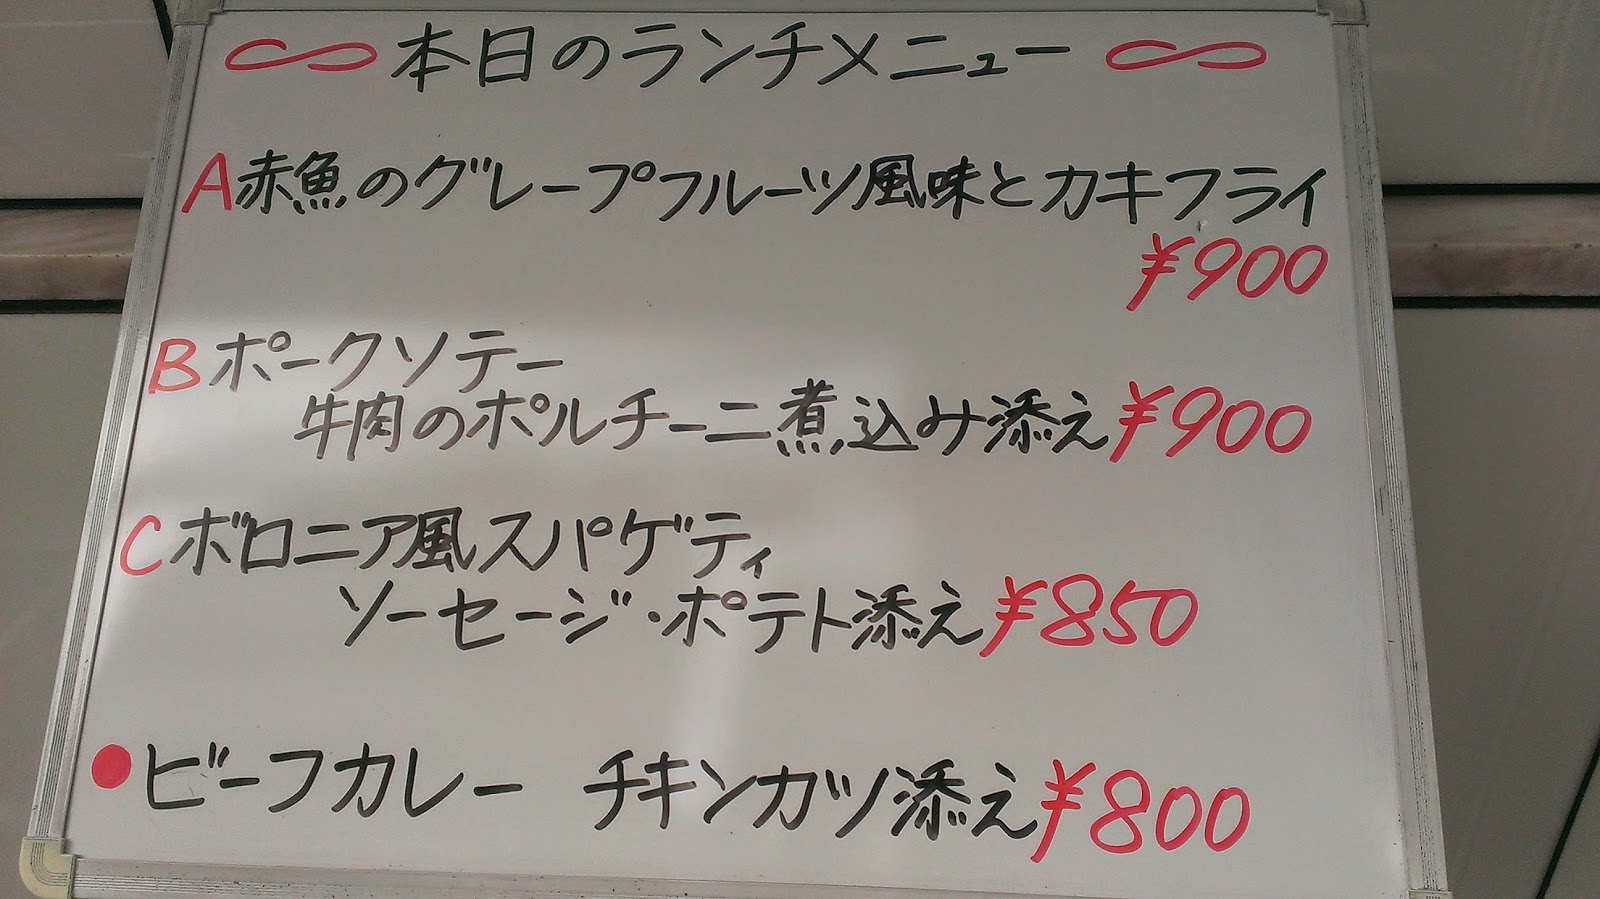 本日のランチメニュー
A赤魚のグレープフルーツ風味とカキフライ
¥900
Bポークソテー
牛肉のポルチーニ煮込み添え¥900
Cボロニア風スパゲティ
ソーセージ・ポテト添え¥850
●ビーフカレー チキンカツ添え¥800